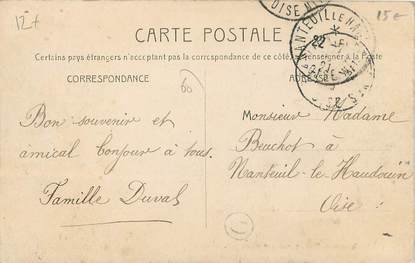 12+
15€
OISE
NANTEUIL LE HA
CARTE POSTALE
Certains pays étrangers n'acceptant pas la correspondance de ce côté, se renseigner à la Poste
CORRESPONDANCE
ADRESSE
60
Bon souvenir et
amical bonjour à tous.
Famille Duval
Monsieur Madame
Beuchot à
Nanteuil-le-Haudouin
Oise